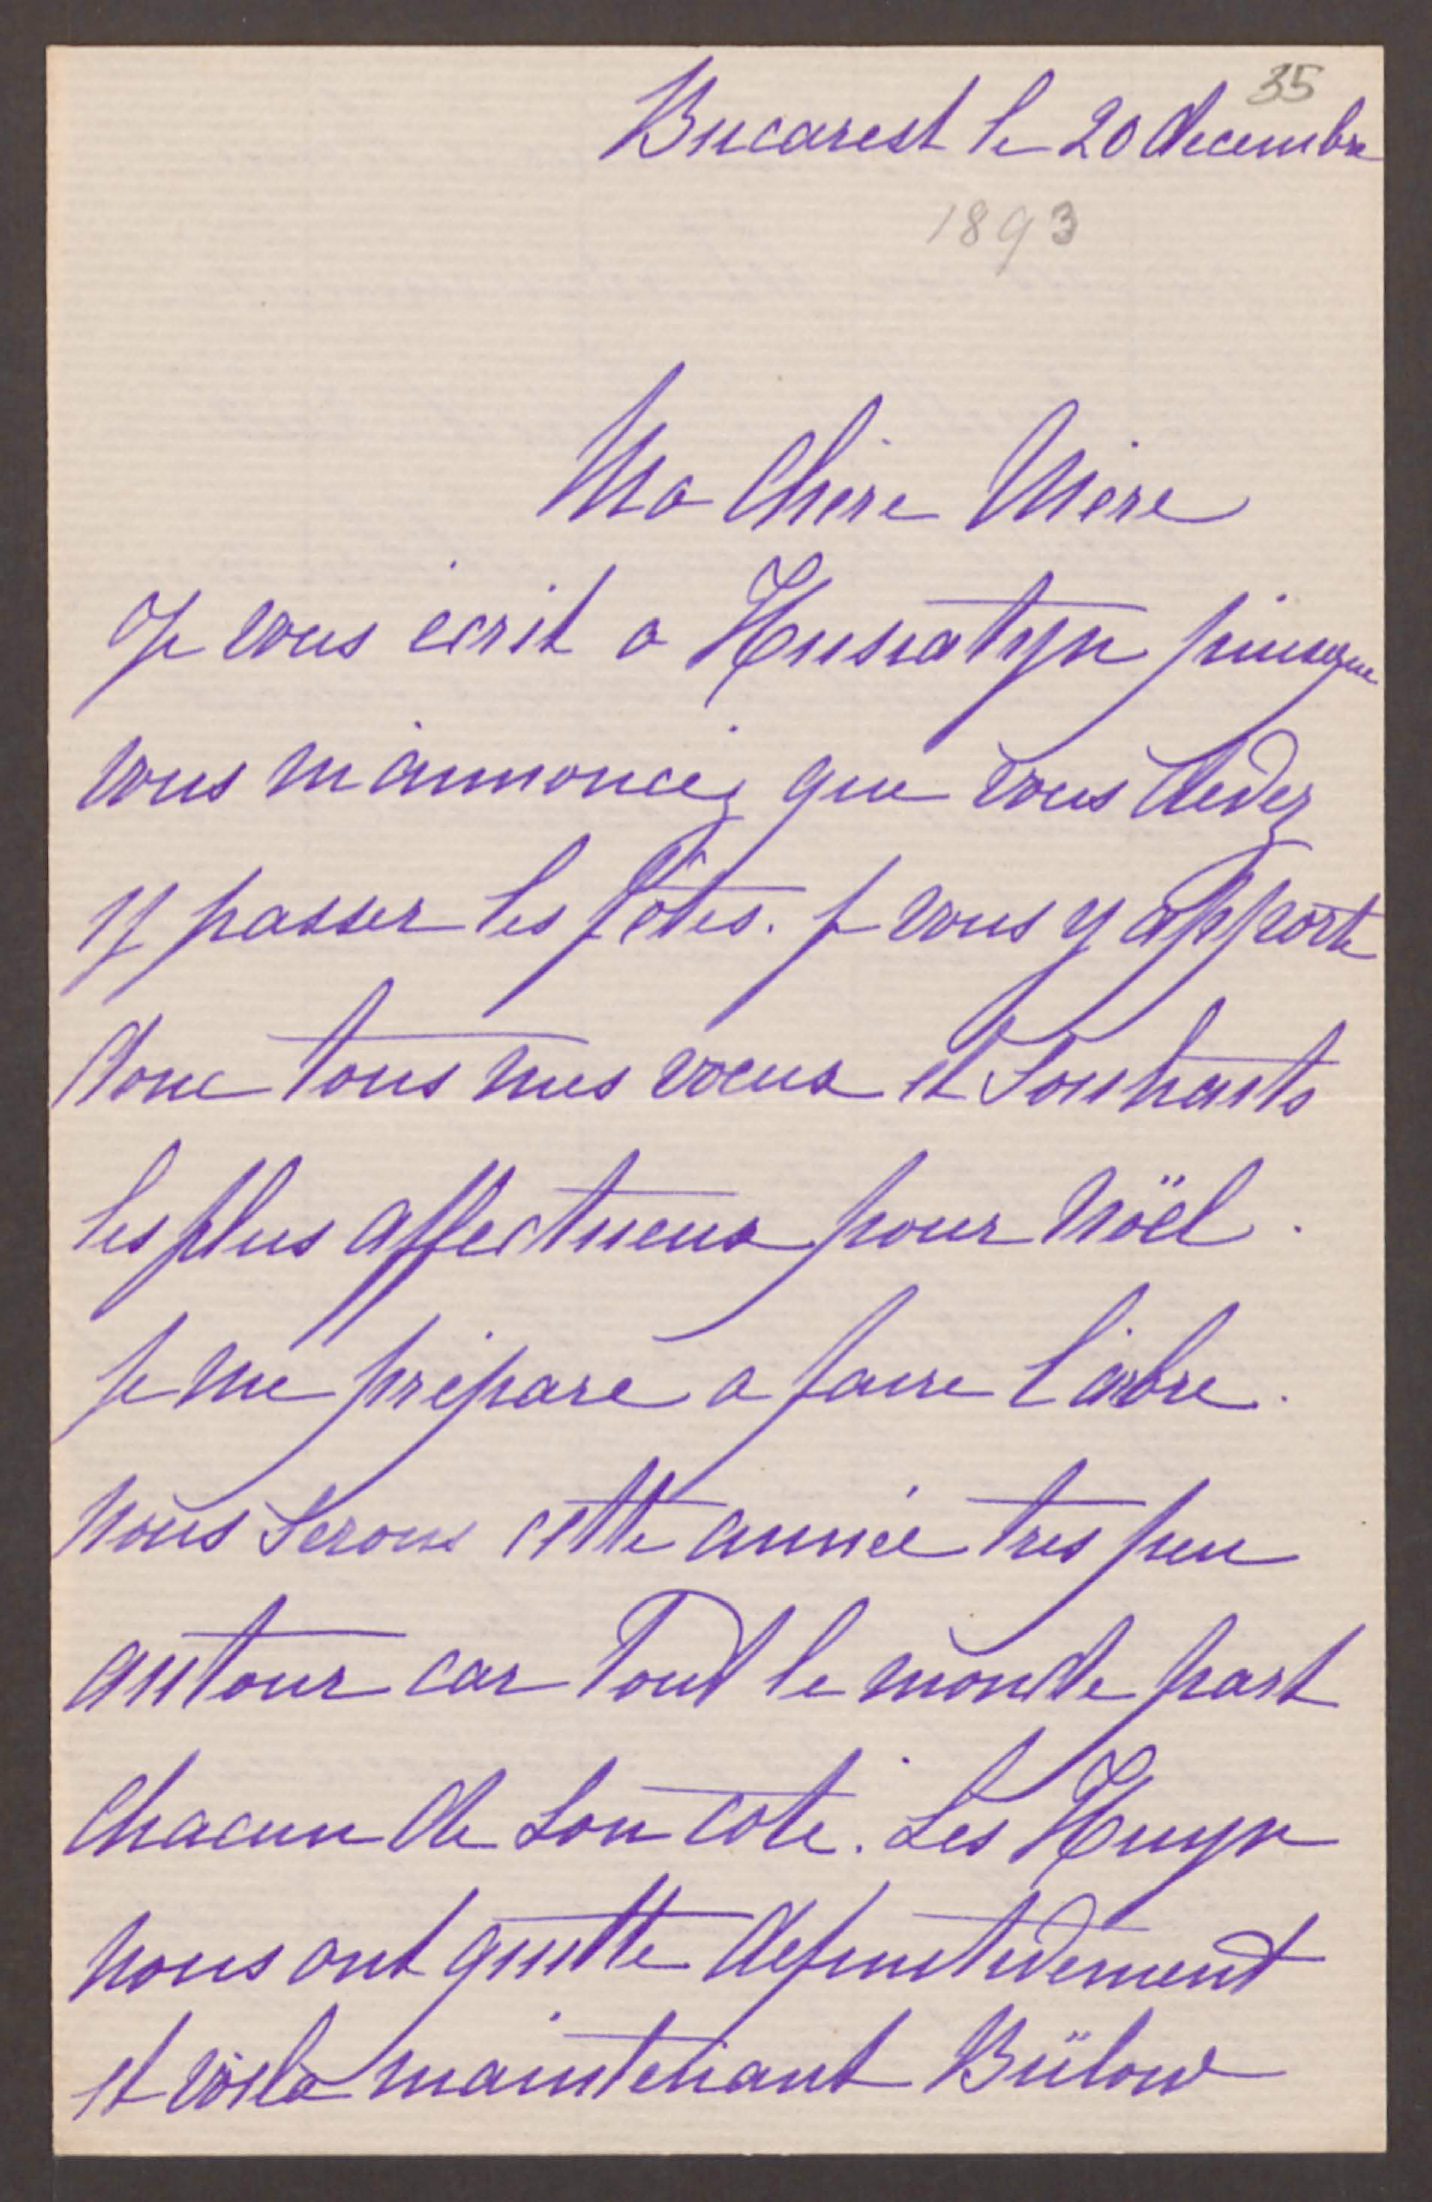 35
Bucarest le 20 decembre
1893
Ma Chère Mère
Je vous écrit a Husiatyn puisque
vous m'annoncez que vous devez
y passer les fêtes. Je vous y apporte
donc tous mes voeux et Souhaits
les plus affectueux pour Nöel.
Je me prépare a faire l'arbre.
Nous Serons cette année tres peu
autour car Tout le monde part
chacun de Son coté. Les Huyn
nous ont quitte definitivement
et voila maintenant Bülow